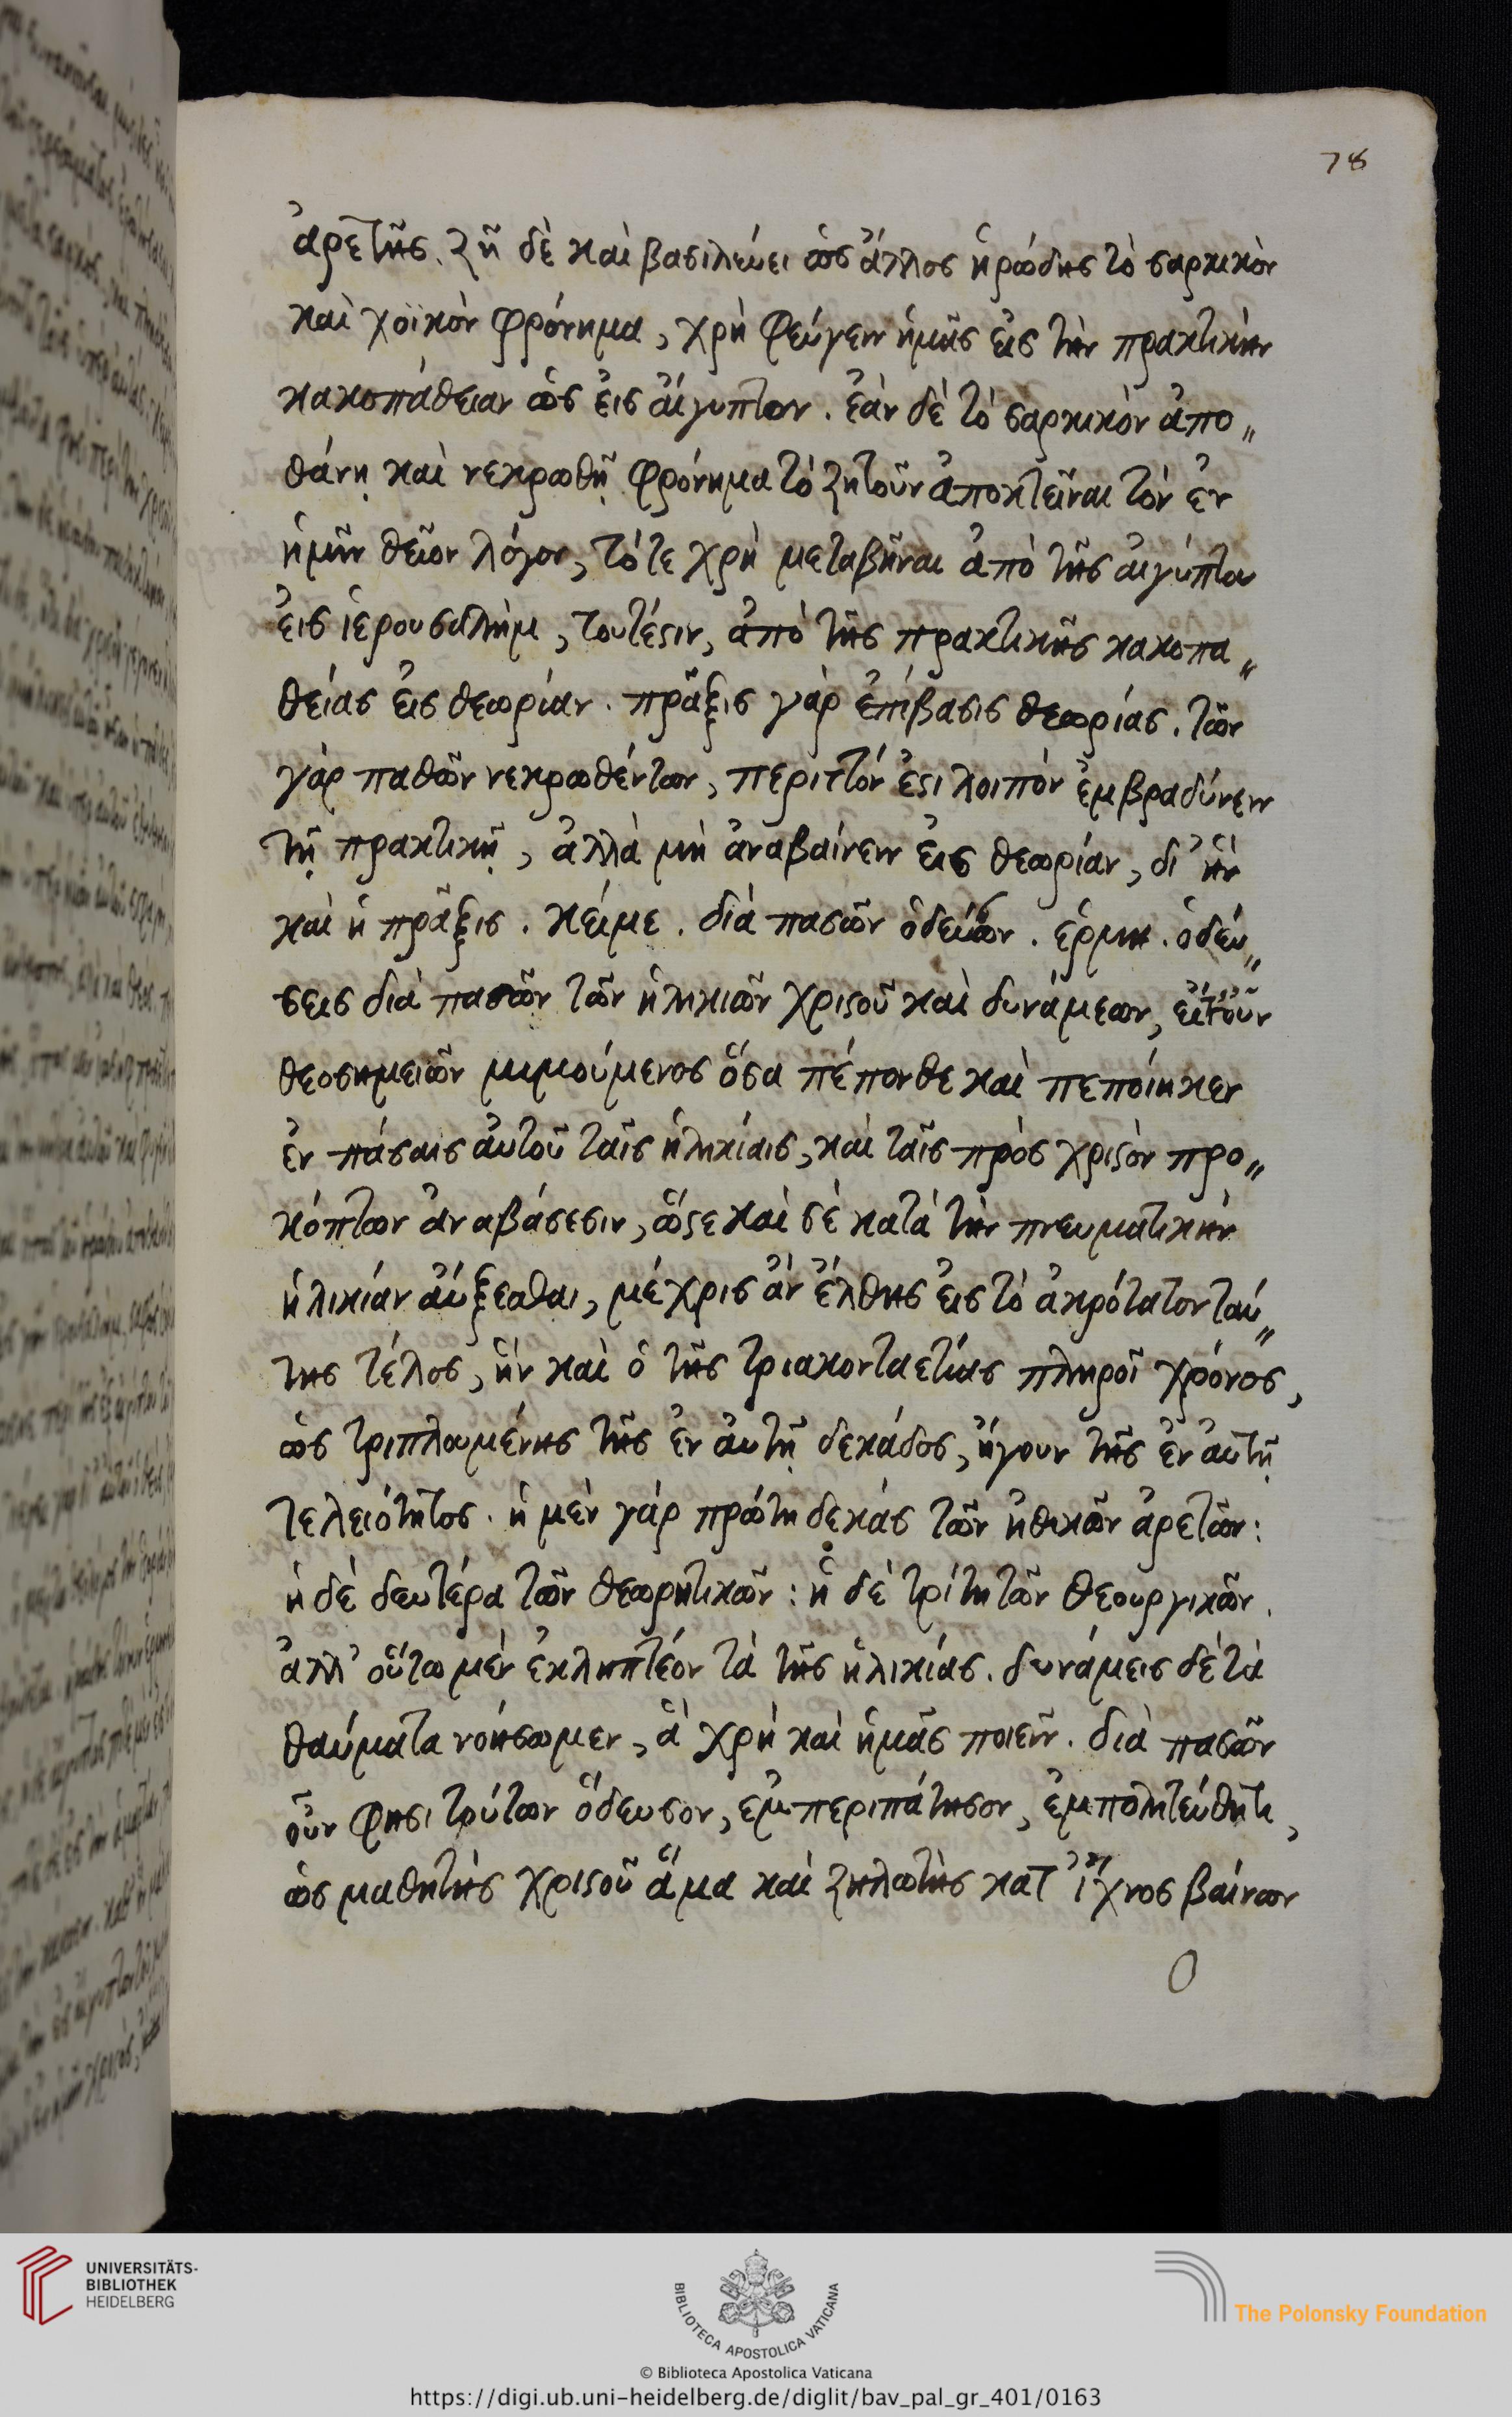 78
ἀρετῆς. ζῆ δὲ καὶ βασιλεύει ὡς ἄλλος ἡρώδης τὸ σαρκικὸν
καὶ χοϊκὸν φρόνημα, χρὴ φεύγειν ἡμᾶς εἰς τὴν πρακτικὴν
κακοπάθειαν ὡς εἰς αἴγυπτον. ἐὰν δὲ τὸ σαρκικὸν ἀπο〃
θάνῃ καὶ νεκρωθῇ φρόνημα τὸ ζητοῦν ἀποκτεῖναι τὸν ἐν
ἡμῖν θεῖον λόγον, τότε χρὴ μεταβῆναι ἀπὸ τῆς αἰγύπτου
εἰς ἱερουσαλὴμ, τουτέςιν, ἀπὸ τῆς πρακτικῆς κακοπα〃
θείας εἰς θεωρίαν. πρᾶξις γὰρ ἐπίβασις θεωρίας. τῶν
γὰρ παθῶν νεκρωθέντων, περιττόν ἐςι λοιπὸν ἐμβραδύνειν
τῇ πρακτικῇ, ἀλλὰ μὴ ἀναβαίνειν εἰς θεωρίαν, δι᾽ ἣν
καὶ ἡ πρᾶξις. κείμε. διὰ πασῶν ὁδεύων. ἑρμη. ὁδεύ〃
σεις διὰ πασῶν τῶν ἡλικιῶν χριςοῦ καὶ δυνάμεων, εἴτουν
θεοσημειῶν μιμούμενος ὅσα πέπονθε καὶ πεποίηκεν
ἐν πάσαις αὐτοῦ ταῖς ἡλικίαις, καὶ ταῖς πρὸς χριςὸν προ〃
κόπτων ἀναβάσεσιν, ὥςε καὶ σὲ κατὰ τὴν πνευματικὴν
ἡλικίαν αὔξεσθαι, μέχρις ἂν ἔλθῃς εἰς τὸ ἀκρότατον ταύ〃
της τέλος, ἣν καὶ ὁ τῆς τριακονταετίας πληροῖ χρόνος,
ὡς τριπλουμένης τῆς ἐν αὐτῇ δεκάδος, ἤγουν τῆς ἐν αὐτῇ
τελειότητος. ἡ μὲν γὰρ πρώτη δεκὰς τῶν ἠθικῶν ἀρετῶν:
ἡ δὲ δευτέρα τῶν θεωρητικῶν: ἡ δὲ τρίτη τῶν θεουργικῶν.
ἀλλ᾽ οὕτω μὲν ἐκληπτέον τὰ τῆς ἡλικίας. δυνάμεις δὲ τὰ
θαύματα νοήσωμεν, ἃ χρὴ καὶ ἡμᾶς ποιεῖν. διὰ πασῶν
οὖν φησι τούτων ὅδευσον, ἐμπεριπάτησον, ἐμπολιτεύθητι,
ὡς μαθητὴς χριςοῦ ἅμα καὶ ζηλωτὴς κατ᾽ ἴχνος βαίνων
UNIVERSITÄTS-
BIBLIOTHEK
HEIDELBERG
BIBLIOTECA APOSTOLICA VATICANA
© Biblioteca Apostolica Vaticana
The Polonsky Foundation
https://digi.ub.uni-heidelberg.de/diglit/bav_pal_gr_401/0163